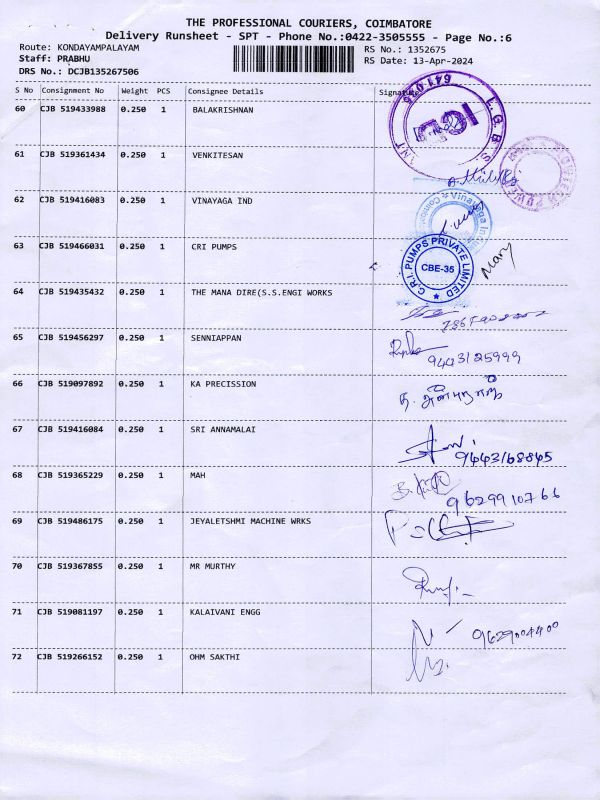 THE PROFESSIONAL COURIERS, COIMBATORE
Delivery Runsheet - SPT - Phone No.:0422-3505555 - Page No.:6
Route: KONDAYAMPALAYAM
RS No.: 1352675
Staff: PRABHU
RS Date: 13-Apr-2024
DRS No.: DCJB135267506
S No Consignment No Weight PCS Consignee Details Signature
60 CJB 519433988 0.250 1 BALAKRISHNAN
641026
L.G.B
61 CJB 519361434 0.250 1 VENKITESAN
62 CJB 519416083 0.250 1 VINAYAGA IND
63 CJB 519466031 0.250 1 CRI PUMPS
C.R.I. PUMPS PRIVATE LIMITED
CBE-35
Mary
64 CJB 519435432 0.250 1 THE MANA DIRE(S.S.ENGI WORKS
65 CJB 519456297 0.250 1 SENNIAPPAN
9443125999
66 CJB 519097892 0.250 1 KA PRECISSION
67 CJB 519416084 0.250 1 SRI ANNAMALAI
9443168845
68 CJB 519365229 0.250 1 MAH
9629910766
69 CJB 519486175 0.250 1 JEYALETSHMI MACHINE WRKS
70 CJB 519367855 0.250 1 MR MURTHY
71 CJB 519081197 0.250 1 KALAIVANI ENGG
9629004400
72 CJB 519266152 0.250 1 OHM SAKTHI